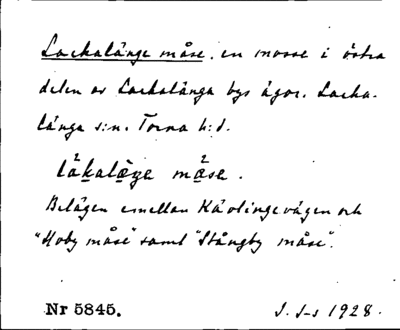 Lackalänge måse. en mosse i östra
delen av Lackalänga bys ägor. Lacka-
länga s:n. Torna h:d.
låkalęŋe måse.
Belägen emellan Kävlingevägen och
"Hoby måse" samt "Stångby måse".
Nr 5845.
J. J-s 1928.